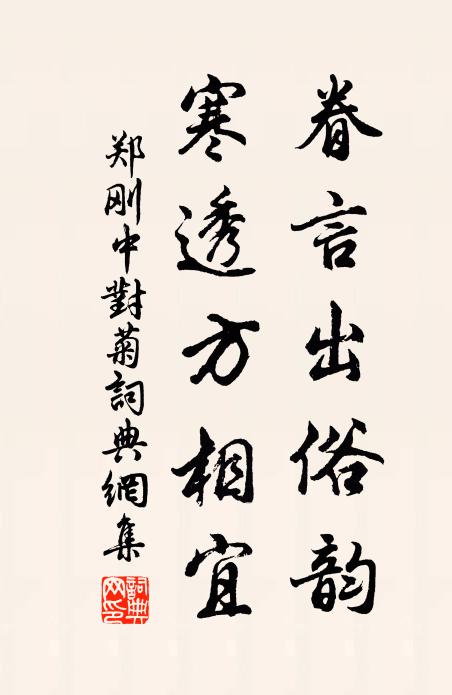 眷言出俗韵
寒透方相宜
郑刚中對菊詞典網集
詞典網印